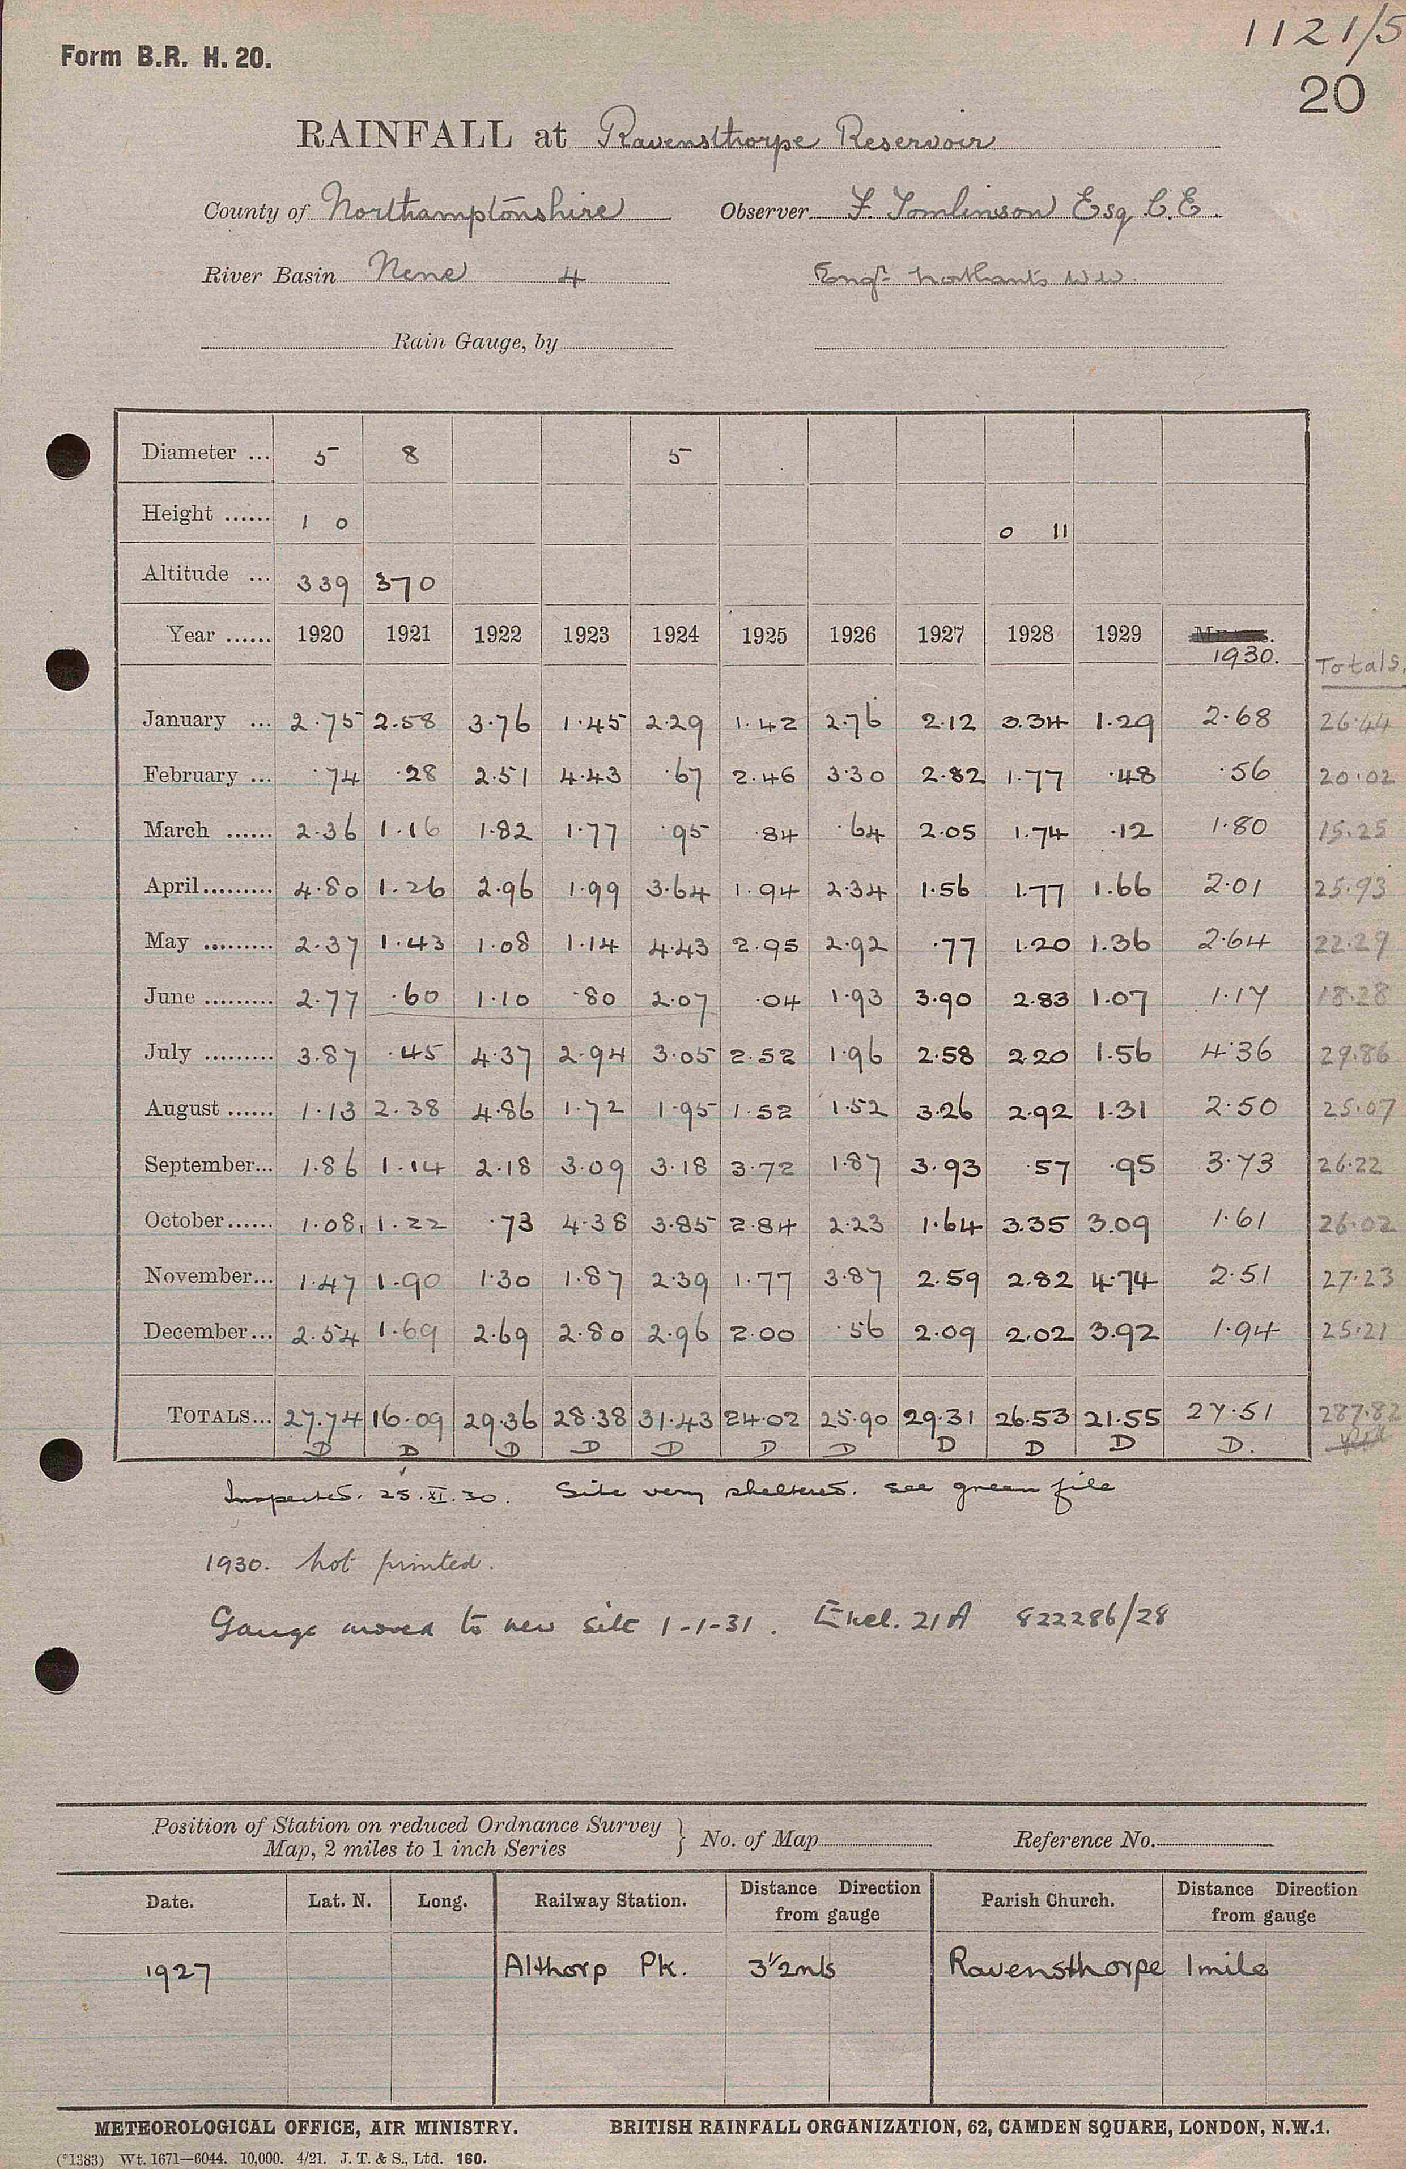 1121/5
Form B.R. H. 20.
20
RAINFALL at Ravensthorpe Reservoir
County of Northamptonshire Observer F. Tomlinson Esq C.E.
River Basin Nene 4 Engr. Northants W.W.
Rain Gauge, by
Diameter ... 5 8 5
Height ...... 1 0 0 11
Altitude ... 339 370
Year ...... 1920 1921 1922 1923 1924 1925 1926 1927 1928 1929 1930. Totals.
January ... 2.75 2.58 3.76 1.45 2.29 1.42 2.76 2.12 3.34 1.29 2.68 26.44
February ... .74 .28 2.51 4.43 .67 2.46 3.30 2.82 1.77 .48 .56 20.02
March ...... 2.36 1.16 1.82 1.77 .95 .84 .64 2.05 1.74 .12 1.80 15.25
April......... 4.80 1.26 2.96 1.99 3.64 1.94 2.34 1.56 1.77 1.66 2.01 25.93
May ......... 2.37 1.43 1.08 1.14 4.43 2.95 2.92 .77 1.20 1.36 2.64 22.29
June ......... 2.77 .60 1.10 .80 2.07 .04 1.93 3.90 2.83 1.07 1.17 18.28
July ......... 3.87 .45 4.37 2.94 3.05 2.52 1.96 2.58 2.20 1.56 4.36 29.86
August ...... 1.13 2.38 4.86 1.72 1.95 1.52 1.52 3.26 2.92 1.31 2.50 25.07
September... 1.86 1.14 2.18 3.09 3.18 3.72 1.87 3.93 .57 .95 3.73 26.22
October...... 1.08 1.22 .73 4.38 3.85 2.84 2.23 1.64 3.35 3.09 1.61 26.02
November... 1.47 1.90 1.30 1.87 2.39 1.77 3.87 2.59 2.82 4.74 2.51 27.23
December... 2.54 1.69 2.69 2.80 2.96 2.00 .56 2.09 2.02 3.92 1.94 25.21
TOTALS... 27.74 16.09 29.36 28.38 31.43 24.02 25.90 29.31 26.53 21.55 27.51 287.82
D D D D D D D D D D D.
Inspected. 25.XI.30. Site very sheltered. see green file
1930. Not printed.
Gauge moved to new site 1-1-31. Encl. 21A 822286/28
Position of Station on reduced Ordnance Survey
Map, 2 miles to 1 inch Series } No. of Map Reference No.
Date. Lat. N. Long. Railway Station. Distance Direction from gauge Parish Church. Distance Direction from gauge
1927 Althorp Pk. 3½mls Ravensthorpe 1mile
METEOROLOGICAL OFFICE, AIR MINISTRY. BRITISH RAINFALL ORGANIZATION, 62, CAMDEN SQUARE, LONDON, N.W.1.
(*1383) Wt. 1671—6044. 10,000. 4/21. J. T. & S., Ltd. 160.